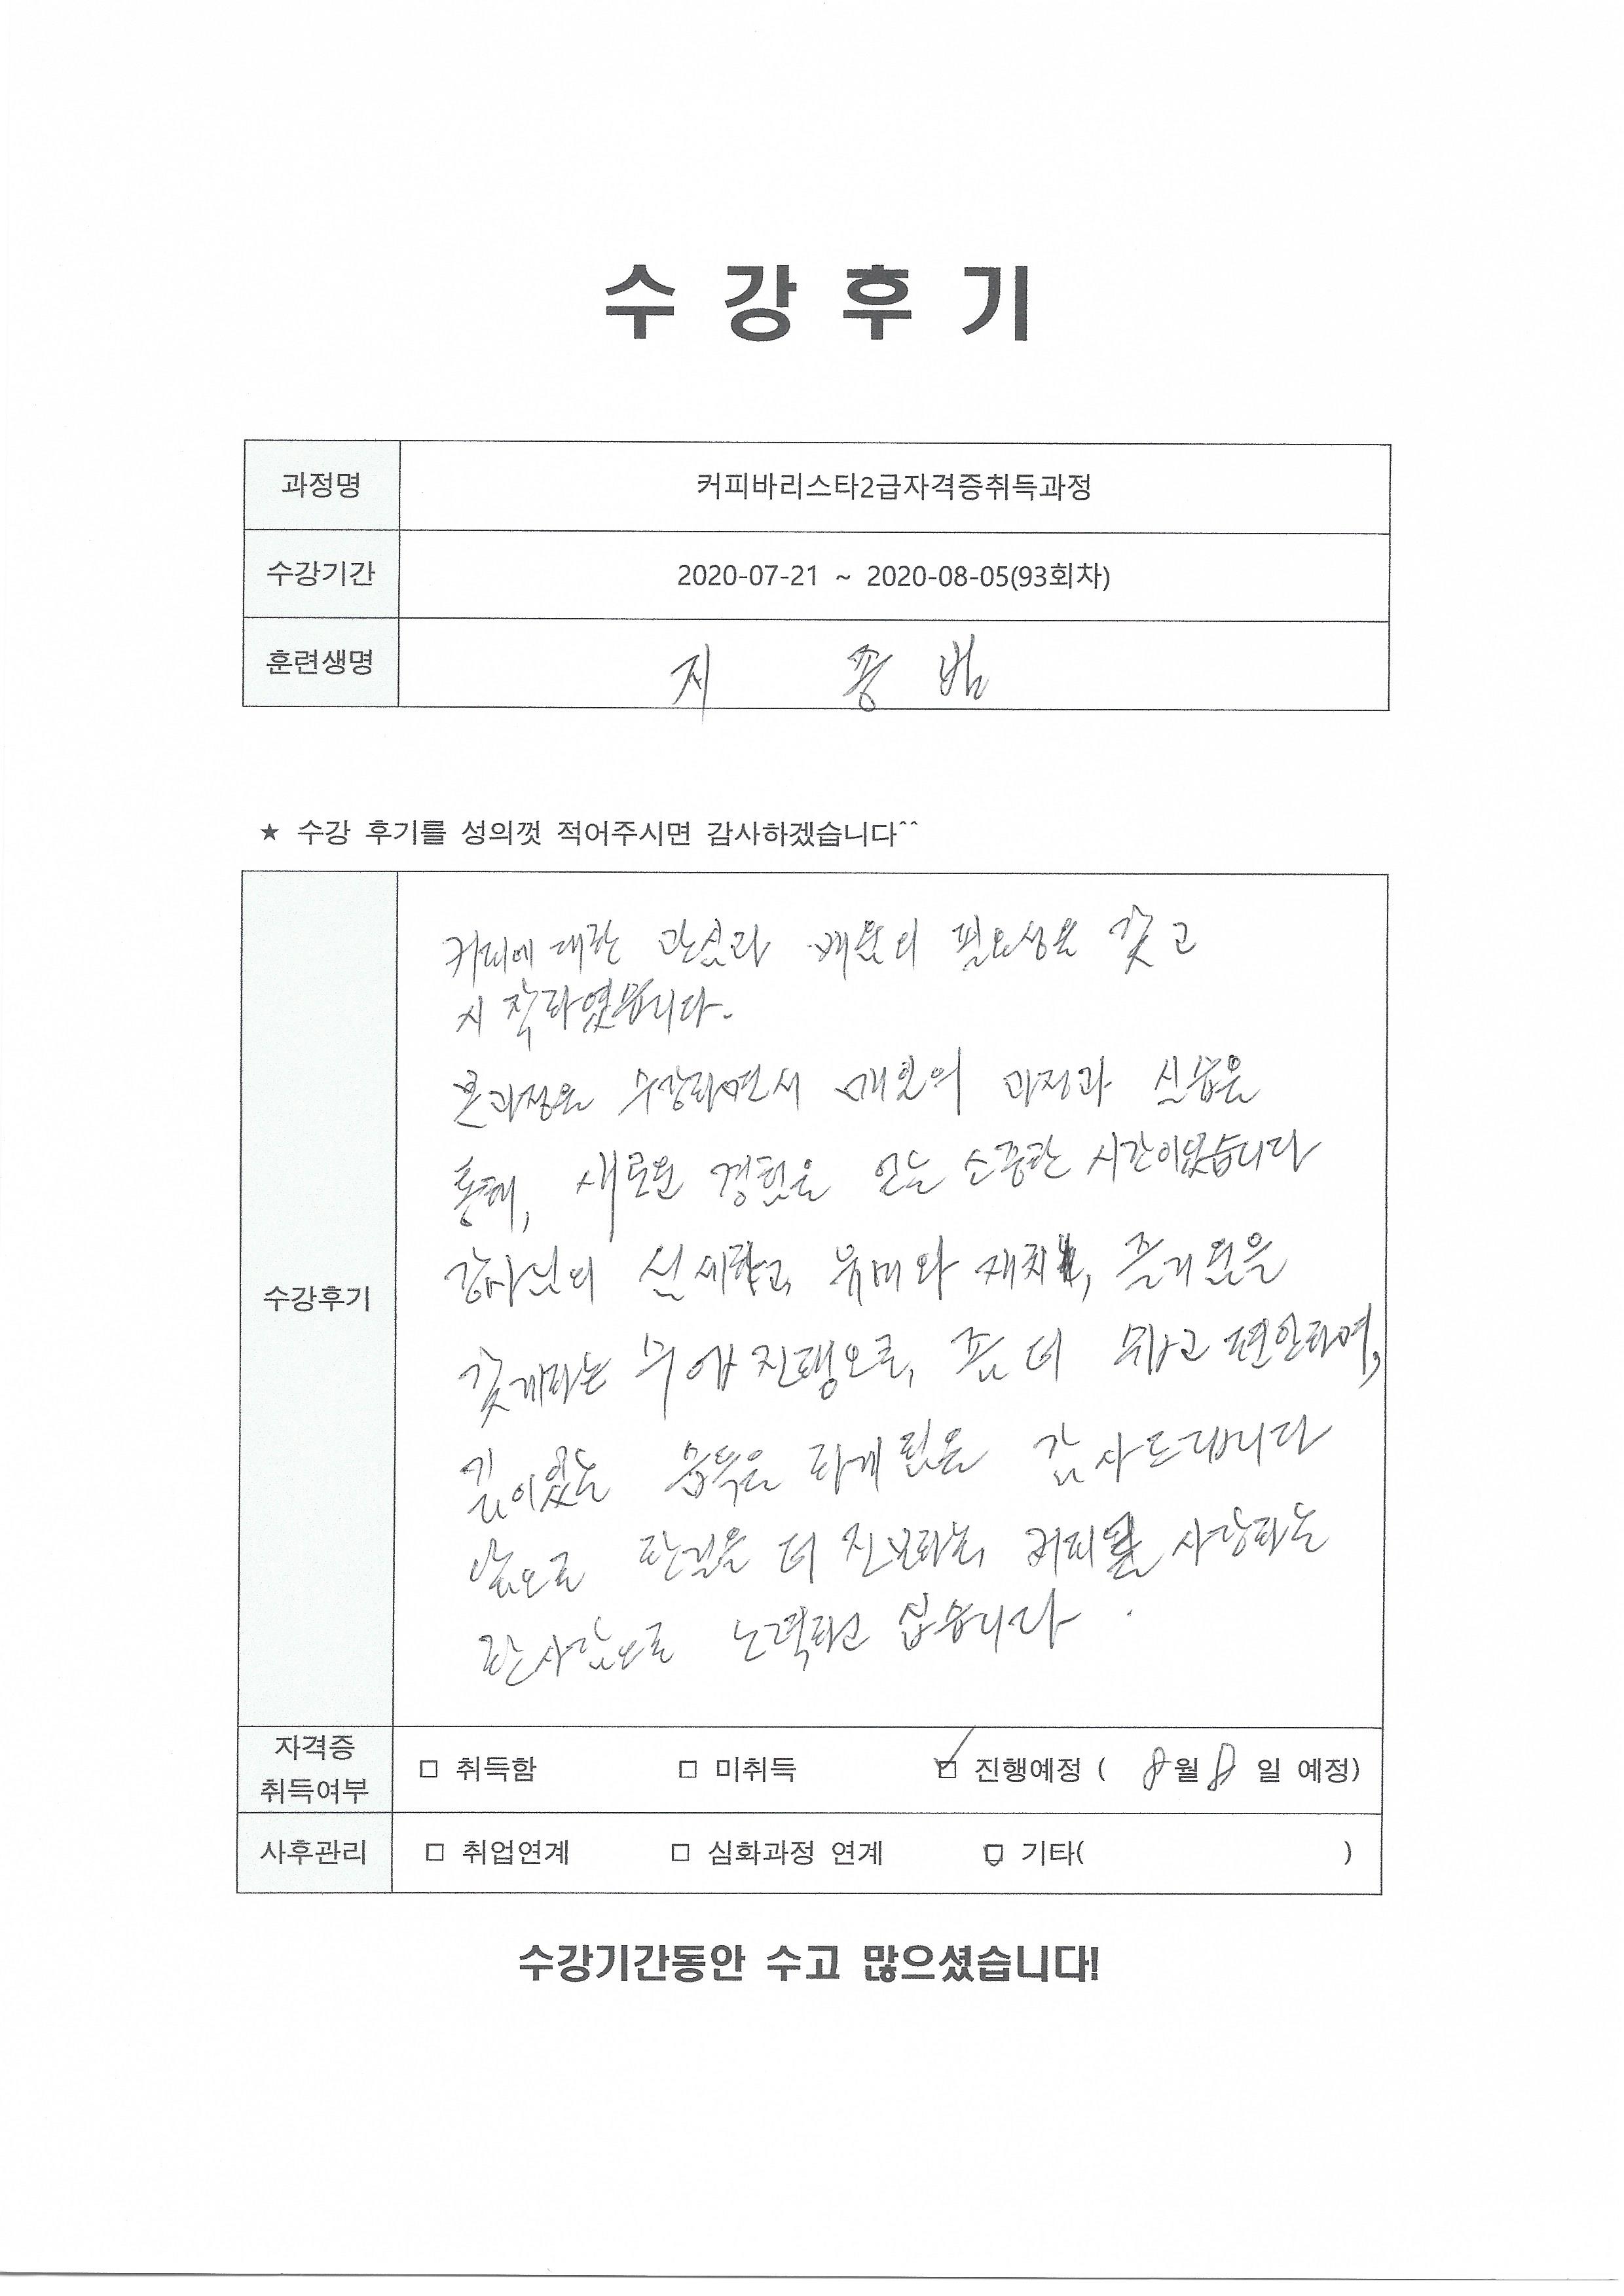 수 강 후 기
과정명 커피바리스타2급자격증취득과정
수강기간 2020-07-21 ~ 2020-08-05(93회차)
훈련생명 지 종 범
★ 수강 후기를 성의껏 적어주시면 감사하겠습니다^^
수강후기
커피에 대한 관심과 배움의 필요성을 갖고
시작하였습니다.
본과정을 수강하면서 매일의 과정과 실습을
통해, 새로운 경험을 얻는 소중한 시간이었습니다
강사님의 섬세하고, 유머와 재치, 즐거움을
갖게하는 수업 진행으로, 좀 더 쉽고 편안하며,
깊이있는 습득을 하게 됨을 감사드립니다
앞으로 한걸음 더 진보하는, 커피를 사랑하는
한사람으로 노력하고 싶습니다.
자격증 취득여부 □ 취득함 □ 미취득 ☑ 진행예정 ( 8월 8일 예정)
사후관리 □ 취업연계 □ 심화과정 연계 ☑ 기타( )
수강기간동안 수고 많으셨습니다!